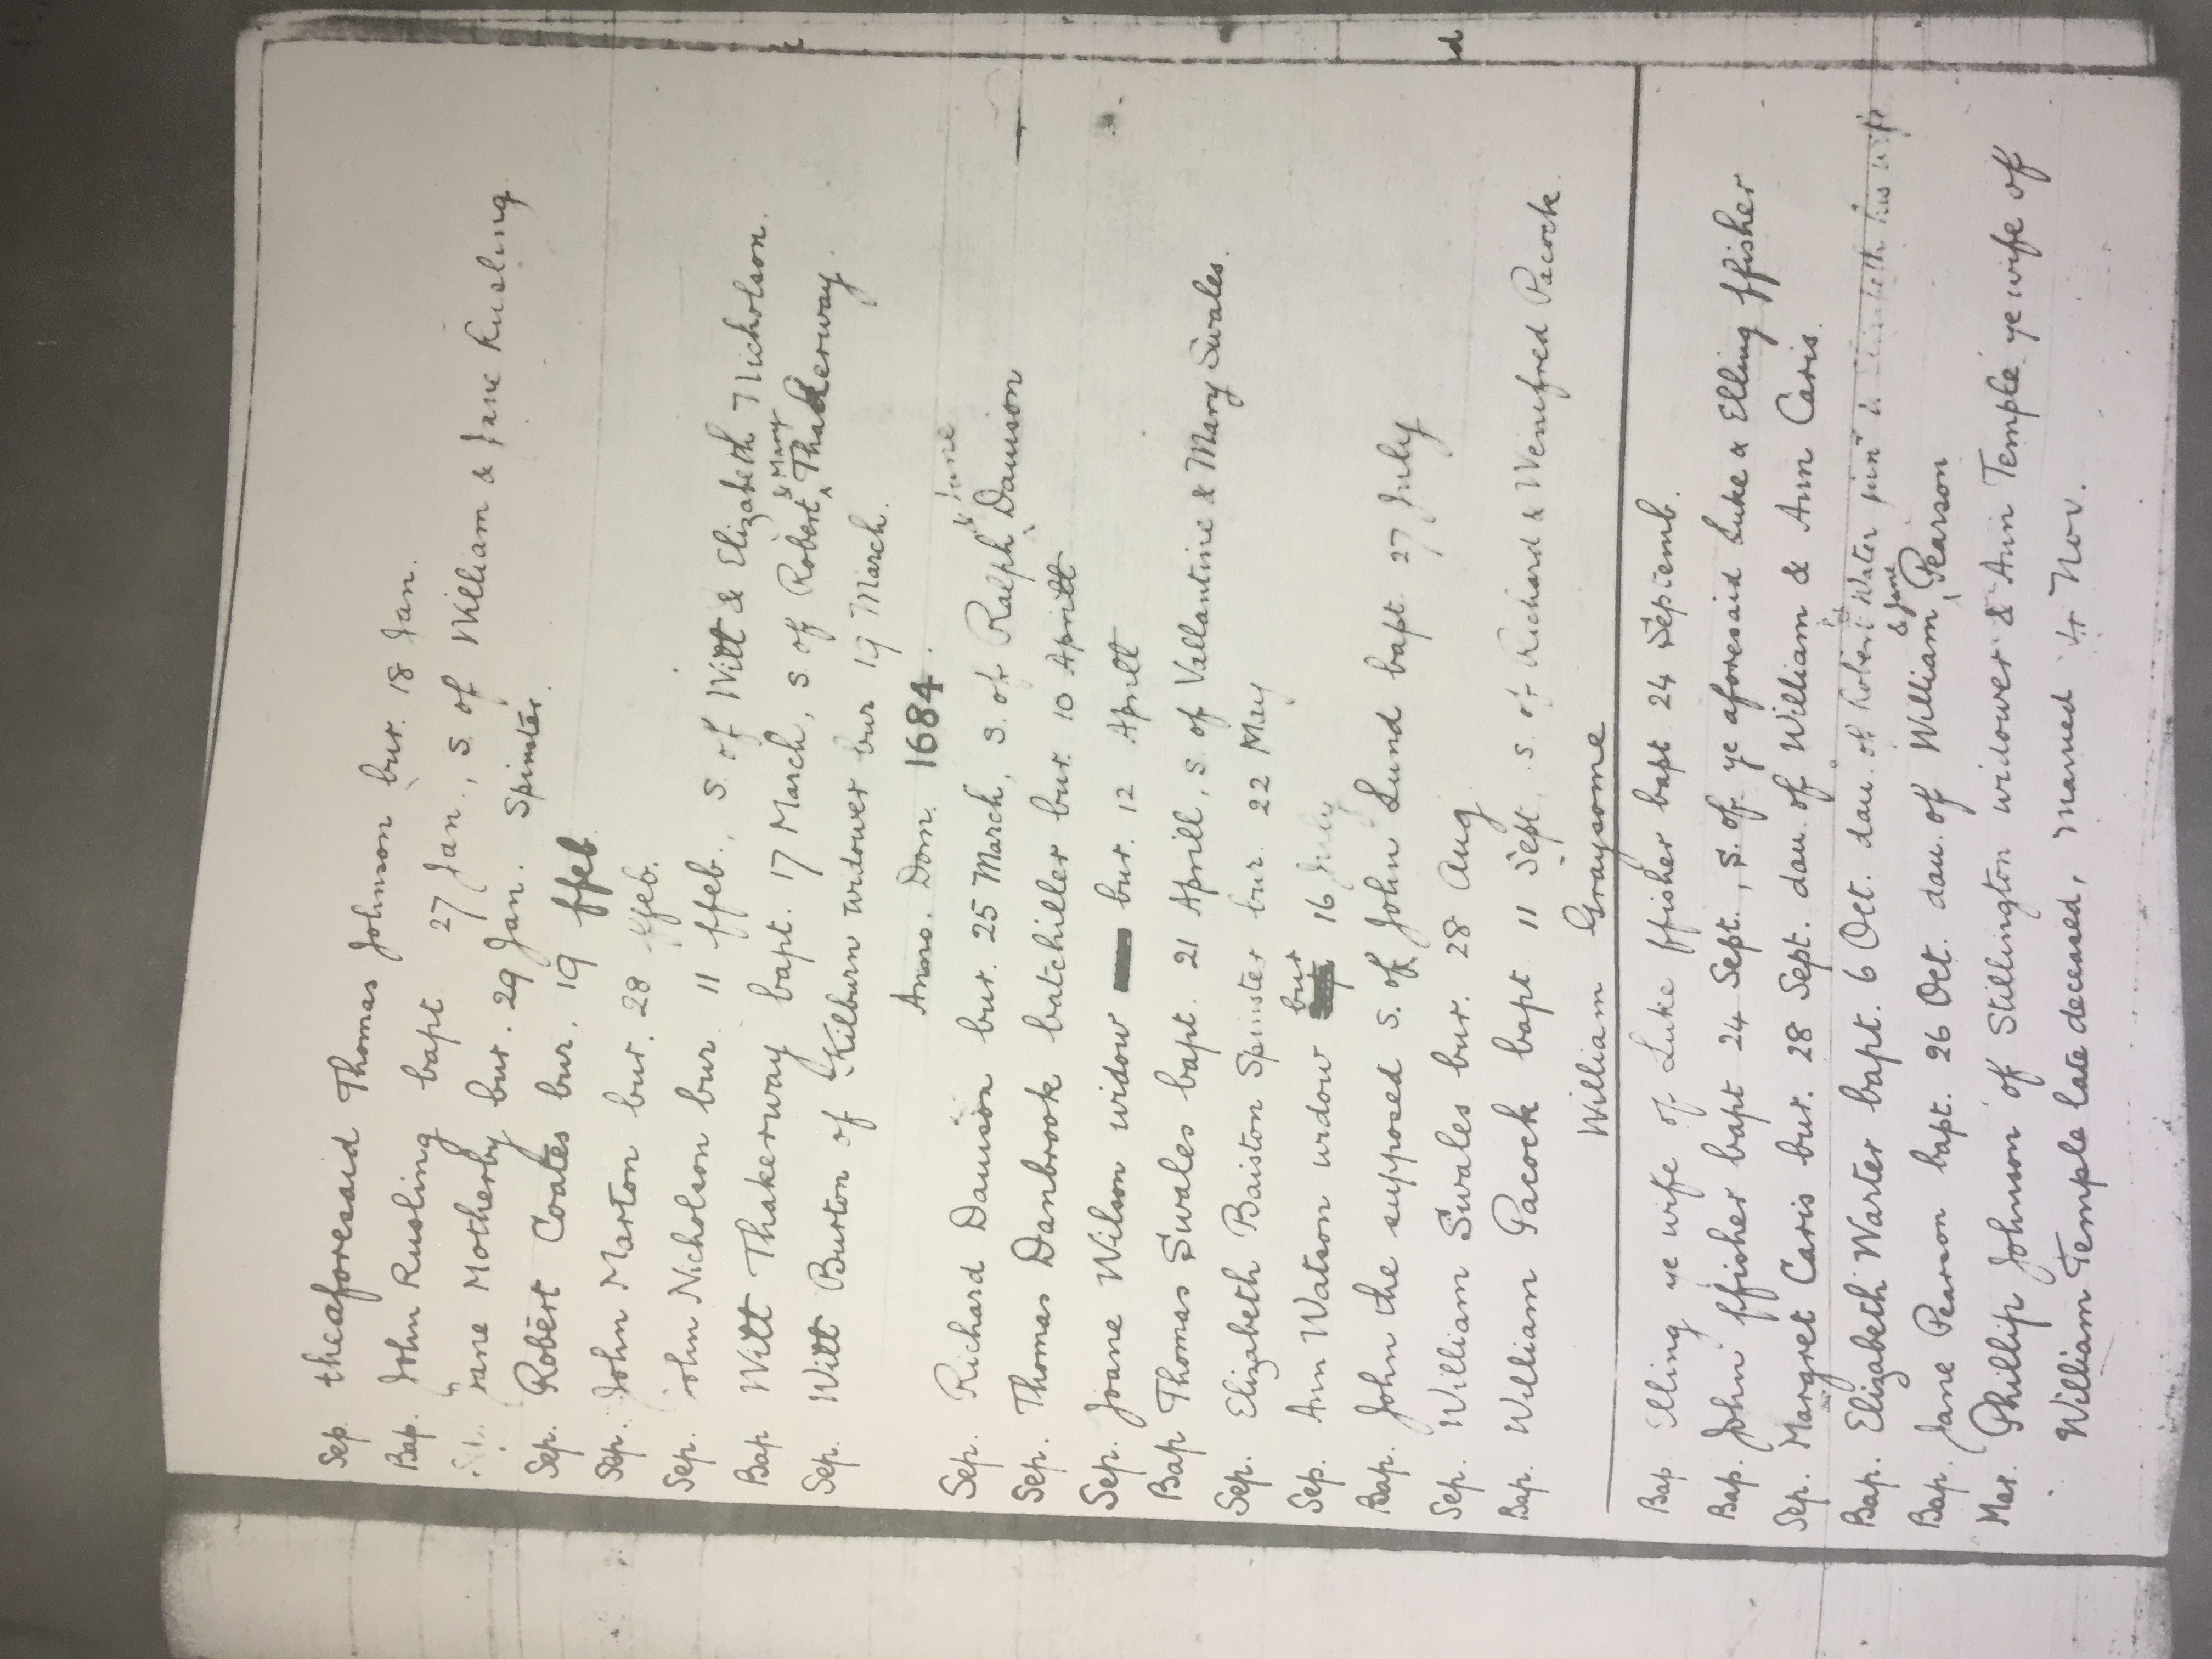 Sep. the aforesaid Thomas Johnson bur. 18 Jan.
Bap. John Rusling bapt 27 Jan., s. of William & Jane Rusling
Jane Motherby bur. 29 Jan. Spinster.
Sep. Robert Coates bur. 19 ffeb.
Sep. John Marton bur. 28 ffeb.
Sep. John Nicholson bur. 11 ffeb., s. of Witt & Elizabeth Nicholson.
Bap Witt Thakerway bapt. 17 March, s. of Robert & Mary Thakerway.
Sep. Witt Burton of Kilburn widower bur 19 March.
Anno. Dom. 1684.
Sep. Richard Dauison bur. 25 March, s. of Ralph & Jane Dauison
Sep. Thomas Danbrook batchiller bur. 10 Aprill
Sep. Joane Wilson widow bur. 12 Aprill
Bap Thomas Swales bapt. 21 Aprill, s. of Vallantine & Mary Swales.
Sep. Elizabeth Baiston Spinster bur. 22 May
Sep. Ann Watson widow bur 16 July
Bap. John the supposed s. of John Lund bapt. 27 July
Sep. William Swales bur. 28 Aug.
Bap. William Pacock bapt 11 Sept, s. of Richard & Wenifred Pacock.
William Graysome
Bap Elling ye wife of Luke ffisher bapt 24 Septemb.
Bap. John ffisher bapt 24 Sept., s. of ye aforesaid Luke & Elling ffisher
Sep. Margret Caris bur. 28 Sept. dau. of William & Ann Caris.
Bap. Elizabeth Warter bapt. 6 Oct. dau. of Robert Water junr & his wife
Bap. Jane Pearson bapt. 26 Oct. dau. of William & Jane Pearson
Mar. Phillip Johnson of Stillington widower & Ann Temple ye wife of
William Temple late deceased, married 4 Nov.